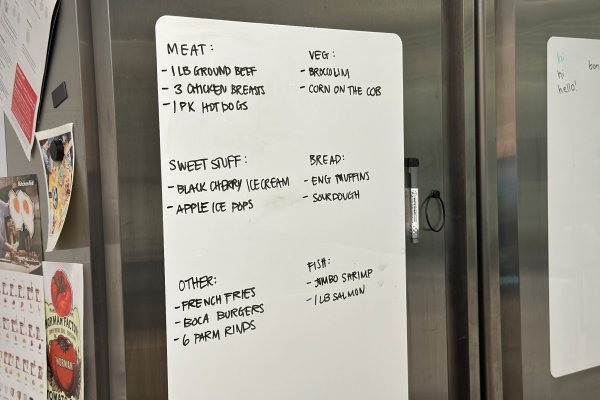 MEAT:
- 1 LB GROUND BEEF
- 3 CHICKEN BREASTS
- 1 PK HOT DOGS
VEG:
- BROCOLIM
- CORN ON THE COB
SWEET STUFF:
- BLACK CHERRY ICE CREAM
- APPLE ICE POPS
BREAD:
- ENG MUFFINS
- SOURDOUGH
OTHER:
- FRENCH FRIES
- BOCA BURGERS
- 6 PARM RINDS
FISH:
- JUMBO SHRIMP
- 1 LB SALMON
hi
hello!
bon
HERMAN